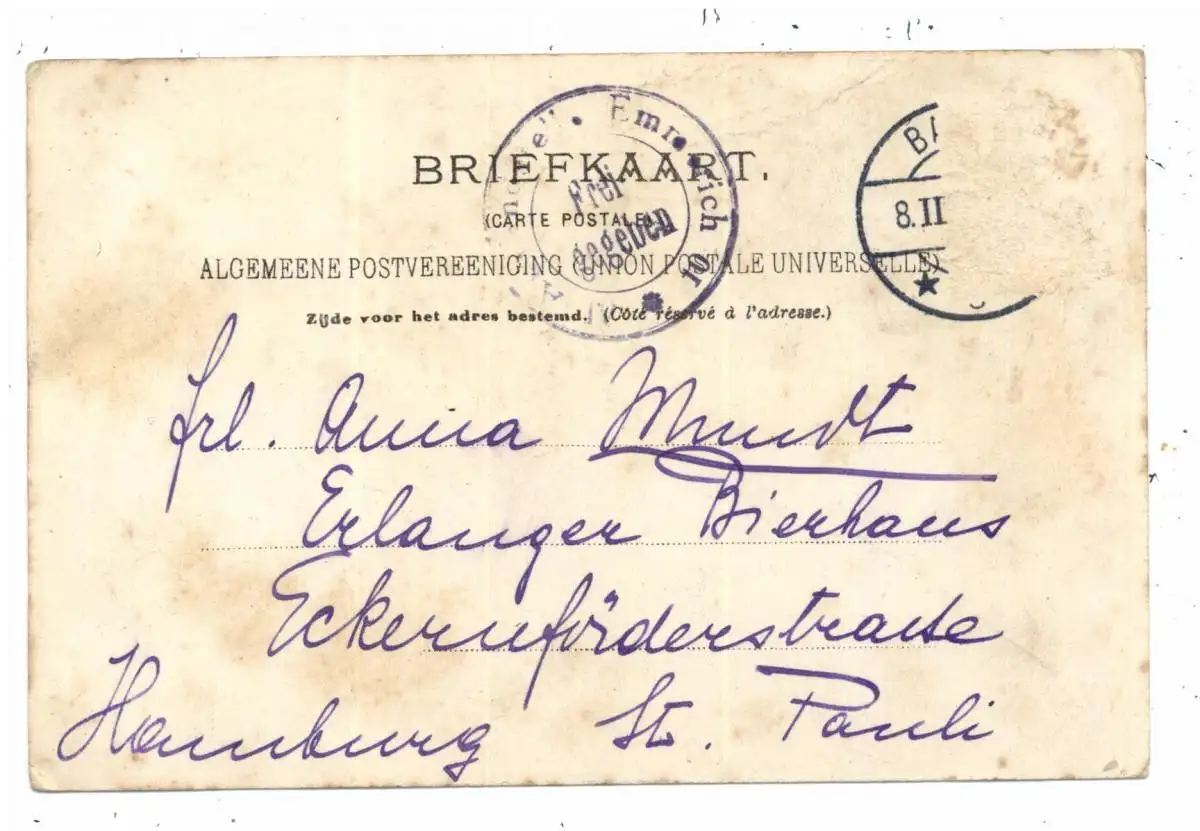 BRIEFKAART.
(CARTE POSTALE)
ALGEMEENE POSTVEREENIGING (UNION POSTALE UNIVERSELLE)
Zijde voor het adres bestemd. (Côté réservé à l'adresse.)
Emmerich
Frei
gegeben
BA
8.II
Frl. Anna Mundt
Erlanger Bierhaus
Eckernförderstrasse
Hamburg St. Pauli